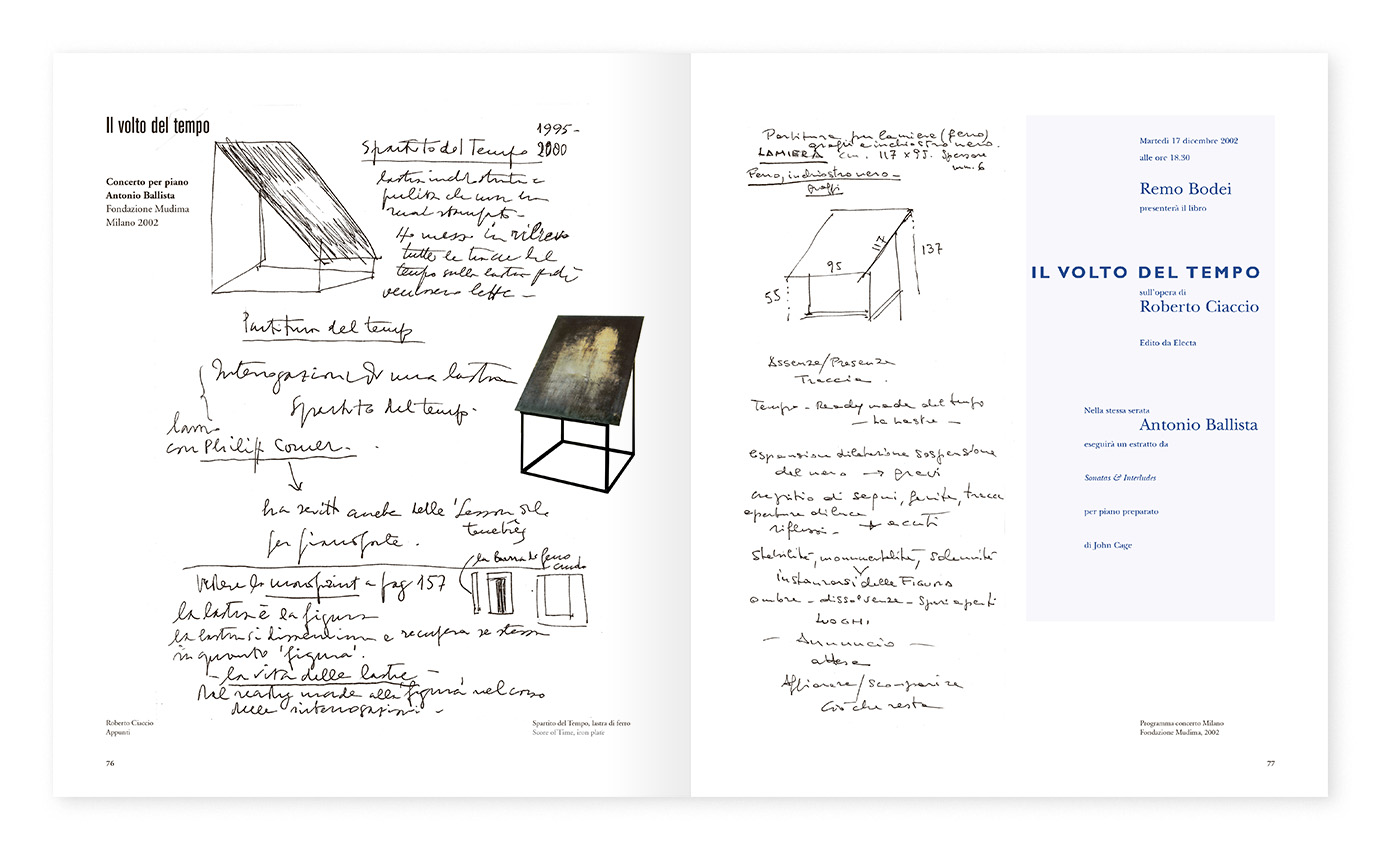 Il volto del tempo
Concerto per piano
Antonio Ballista
Fondazione Mudima
Milano 2002
Spartito del Tempo
1995-
2000
lastra industriale
pulita che non ha
mai stampato-
Ho messo in rilievo
tutte le tracce del
tempo sulla lastra
Partitura del temp
Interrogazioni di una lastra
Spartito del tempo.
con Philip Corner.
ha scritto anche delle 'Lesson
tenebrès
per pianoforte.
la barra di ferro
cruda
Vedere la monoprint a pag 157
la lastra è la figura
la lastra si e recupera se stessa
in quanto 'figura'.
-la vita delle lastre-
Dal ready made alla 'figura' nel corso
delle interrogazioni-
Roberto Ciaccio
Appunti
Spartito del Tempo, lastra di ferro
Score of Time, icon plate
76
Partitura per lamiere (ferro)
graffi e inchiostro nero.
LAMIERA cm. 117 x 95. Spessore
mm. 6
Ferro, inchiostro nero-
graffi
117
137
95
55
Assenze/Presenze
Traccia.
Tempo - Ready made del tempo
- La lastra -
espansione dilatazione sospensione
del nero → gravi
di segni, ferite, tracce
aperture di luce
riflessi. → acuti
Stabilità, monumentalità, solennità
instanziarsi delle FIGURA
ombre - dissolvenze - Spazi aperti
LUOGHI
- Annuncio -
attesa
Affiorare/Scomparire
Ciò che resta
Martedì 17 dicembre 2002
alle ore 18.30
Remo Bodei
presenterà il libro
IL VOLTO DEL TEMPO
sull'opera di
Roberto Ciaccio
Edito da Electa
Nella stessa serata
Antonio Ballista
eseguirà un estratto da
Sonatas & Interludes
per piano preparato
di John Cage
Programma concerto Milano
Fondazione Mudima, 2002
77